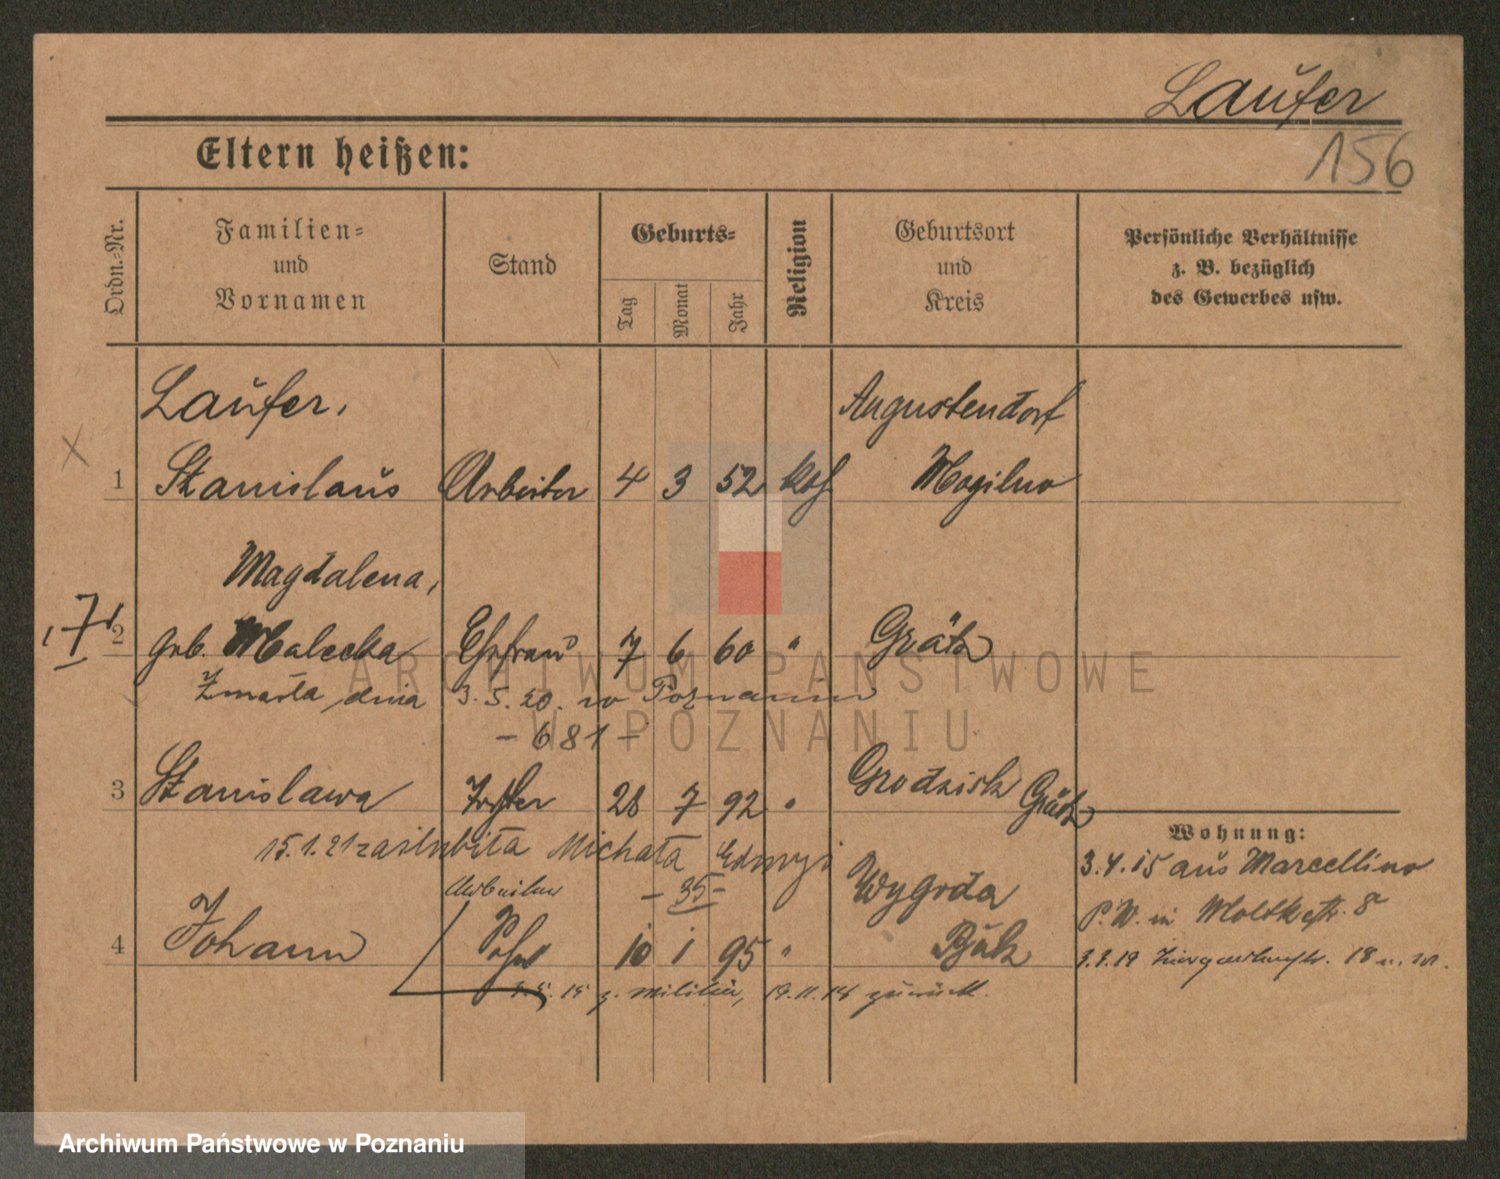 Laufer
156
Eltern heißen:
Ordn.-Nr.
Familien-
und
Vornamen
Stand
Geburts-
Tag
Monat
Jahr
Religion
Geburtsort
und
Kreis
Persönliche Verhältnisse
z. B. bezüglich
des Gewerbes usw.
Laufer, Augustendorf
1 Stanislaus Arbeiter 4 3 52 kath Mogilno
Magdalena,
2 geb. Malecka Ehefrau 7 6 60 " Grätz
Zmarła dnia 3.5.20. w Poznaniu
- 681 -
3 Stanislawa Tochter 28 7 92 " Grodzisk Grätz
15.1.21 zaślubiła Michała
- 35 -
Arbeiter
4 Johann Sohn 10 1 95 "
15 z. Militär, 19.11.18 zurück.
Wohnung:
3.4.15 aus Marcellino
P.W. in Moltkestr. 8
18
ARCHIWUM PAŃSTWOWE
W POZNANIU
Archiwum Państwowe w Poznaniu